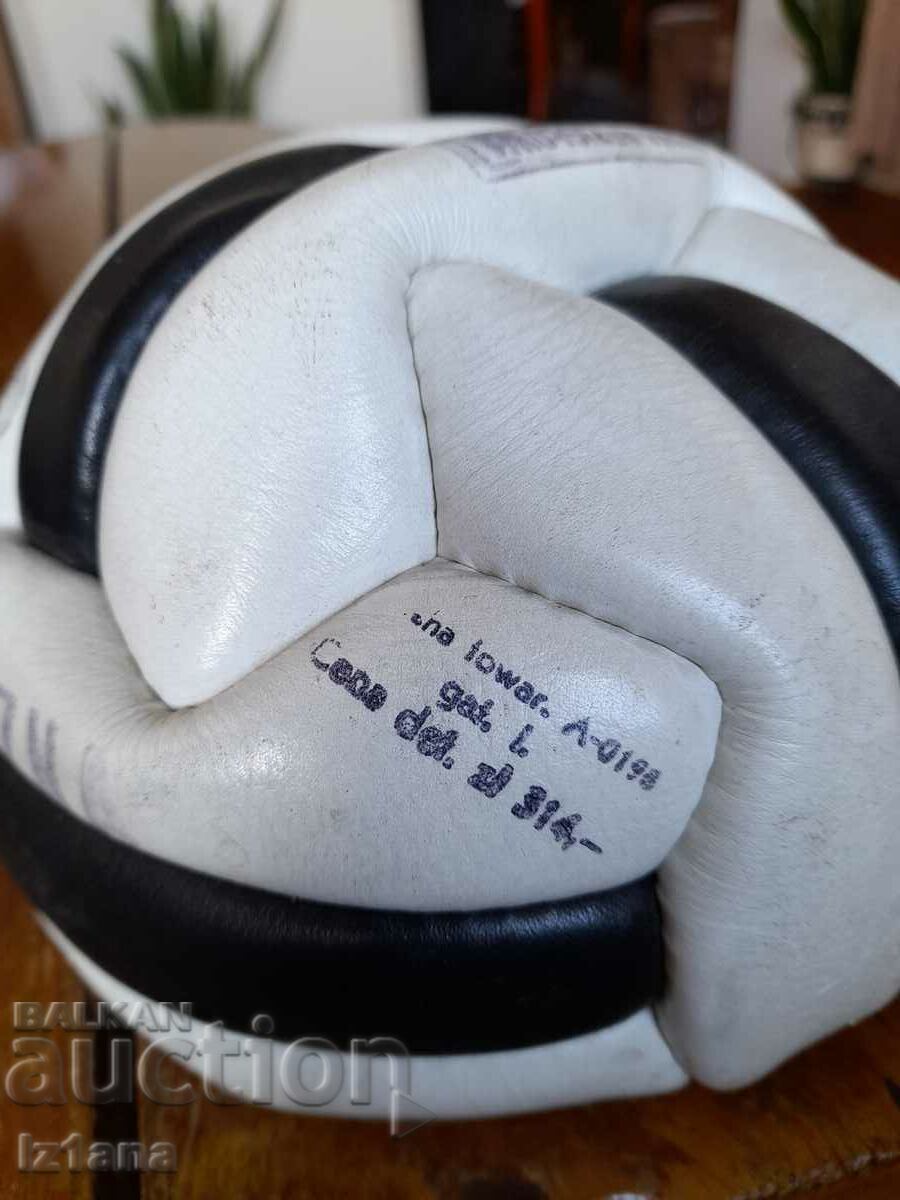 na towar. A-0198
gat. I.
Cena det. zł 314,-
BALKAN
auction
Iz1ana